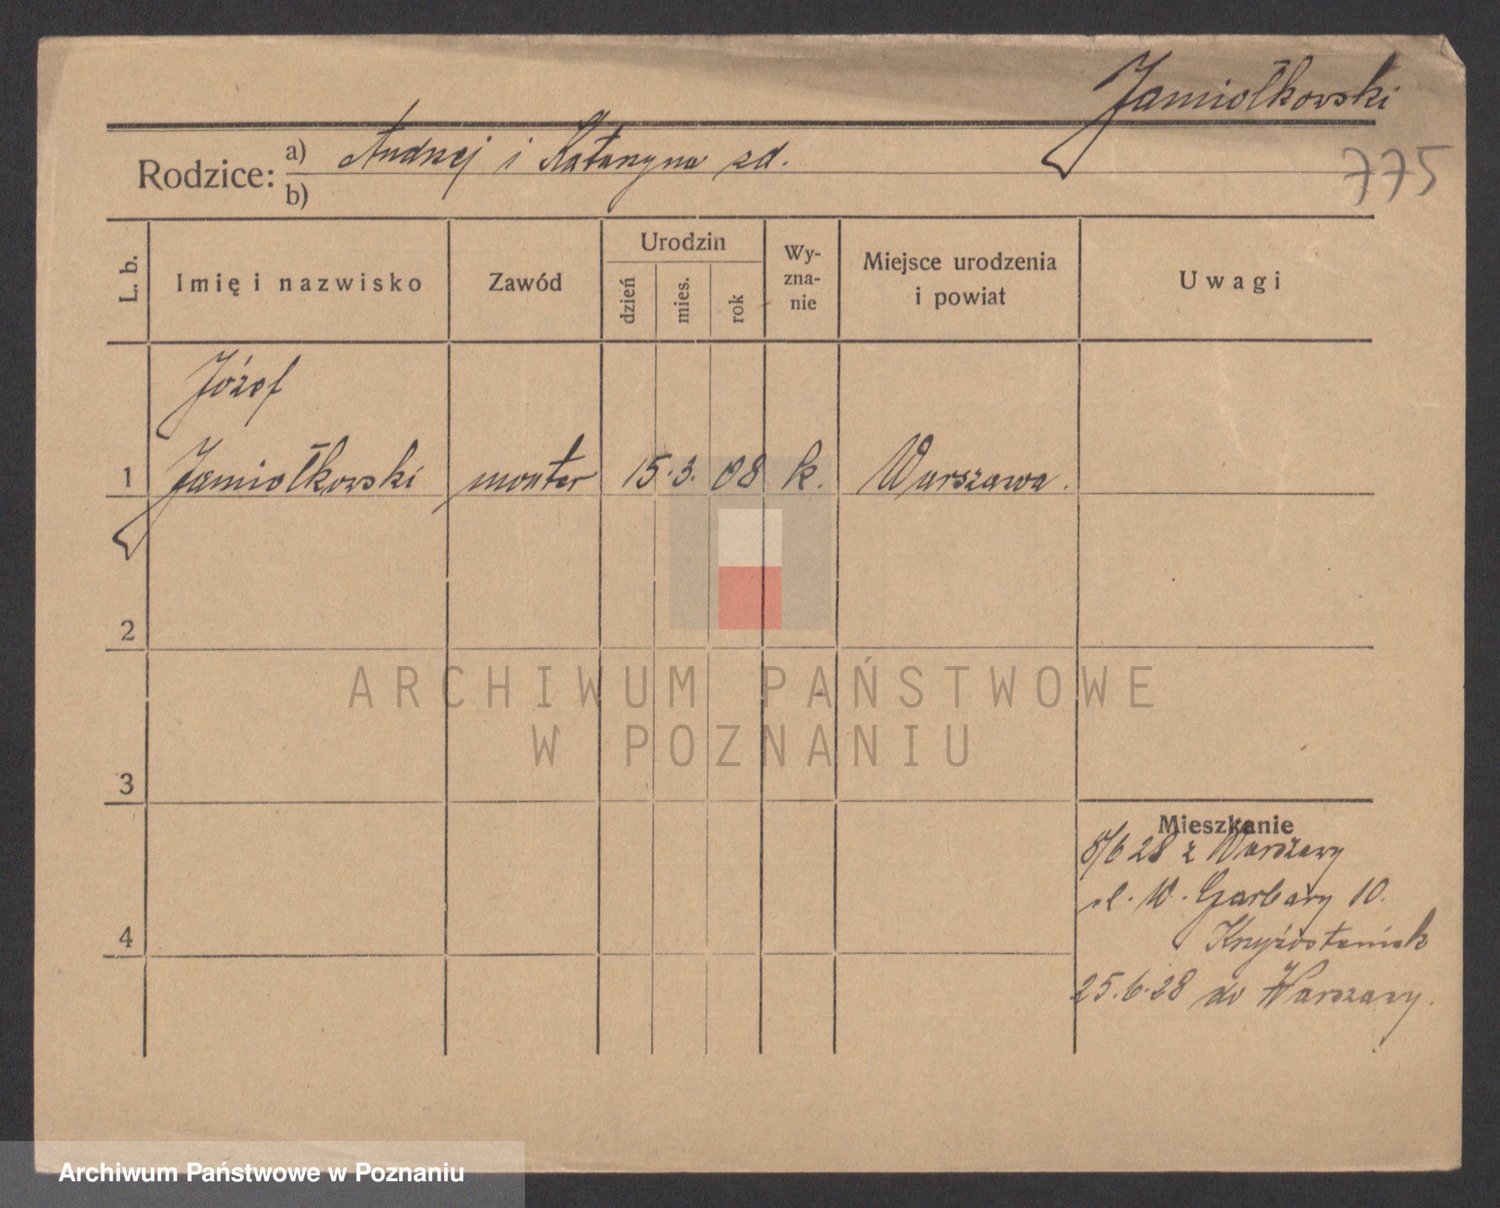 Jamiołkowski
775
Rodzice: a) Andrzej i Katarzyna zd.
b)
L. b.
Imię i nazwisko
Zawód
Urodzin
dzień
mies.
rok
Wy-
zna-
nie
Miejsce urodzenia
i powiat
Uwagi
Józef
1 Jamiołkowski monter 15. 3. 08 k. Warszawa.
2
3
4
Mieszkanie
8/6 28 z Warszawy
ul. W. Garbary 10.
25.6.28 do Warszawy.
ARCHIWUM PAŃSTWOWE
W POZNANIU
Archiwum Państwowe w Poznaniu